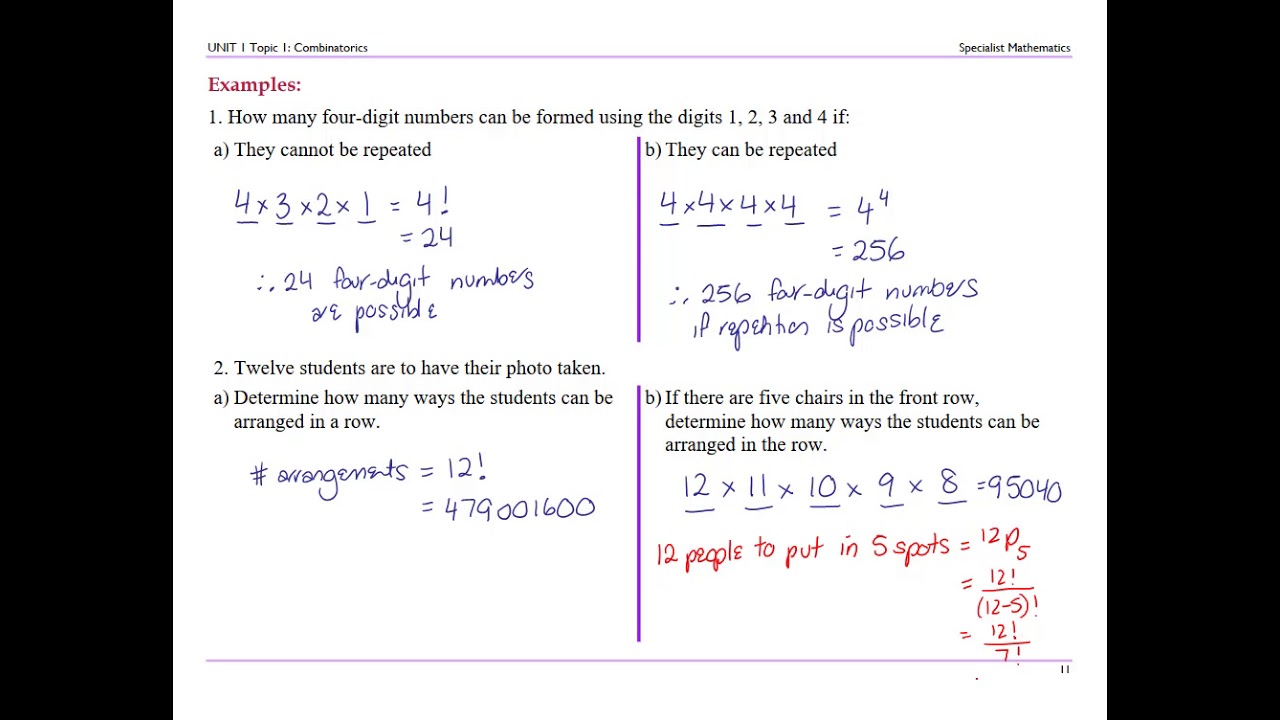 UNIT 1 Topic 1: Combinatorics Specialist Mathematics
Examples:
1. How many four-digit numbers can be formed using the digits 1, 2, 3 and 4 if:
a) They cannot be repeated
4 × 3 × 2 × 1 = 4!
= 24
∴ 24 four-digit numbers
are possible
b) They can be repeated
4 × 4 × 4 × 4 = 4⁴
= 256
∴ 256 four-digit numbers
if repetition is possible
2. Twelve students are to have their photo taken.
a) Determine how many ways the students can be
arranged in a row.
# arrangements = 12!
= 479001600
b) If there are five chairs in the front row,
determine how many ways the students can be
arranged in the row.
12 × 11 × 10 × 9 × 8 = 95040
12 people to put in 5 spots = ¹²P₅
= 12!/(12-5)!
= 12!/7!
11